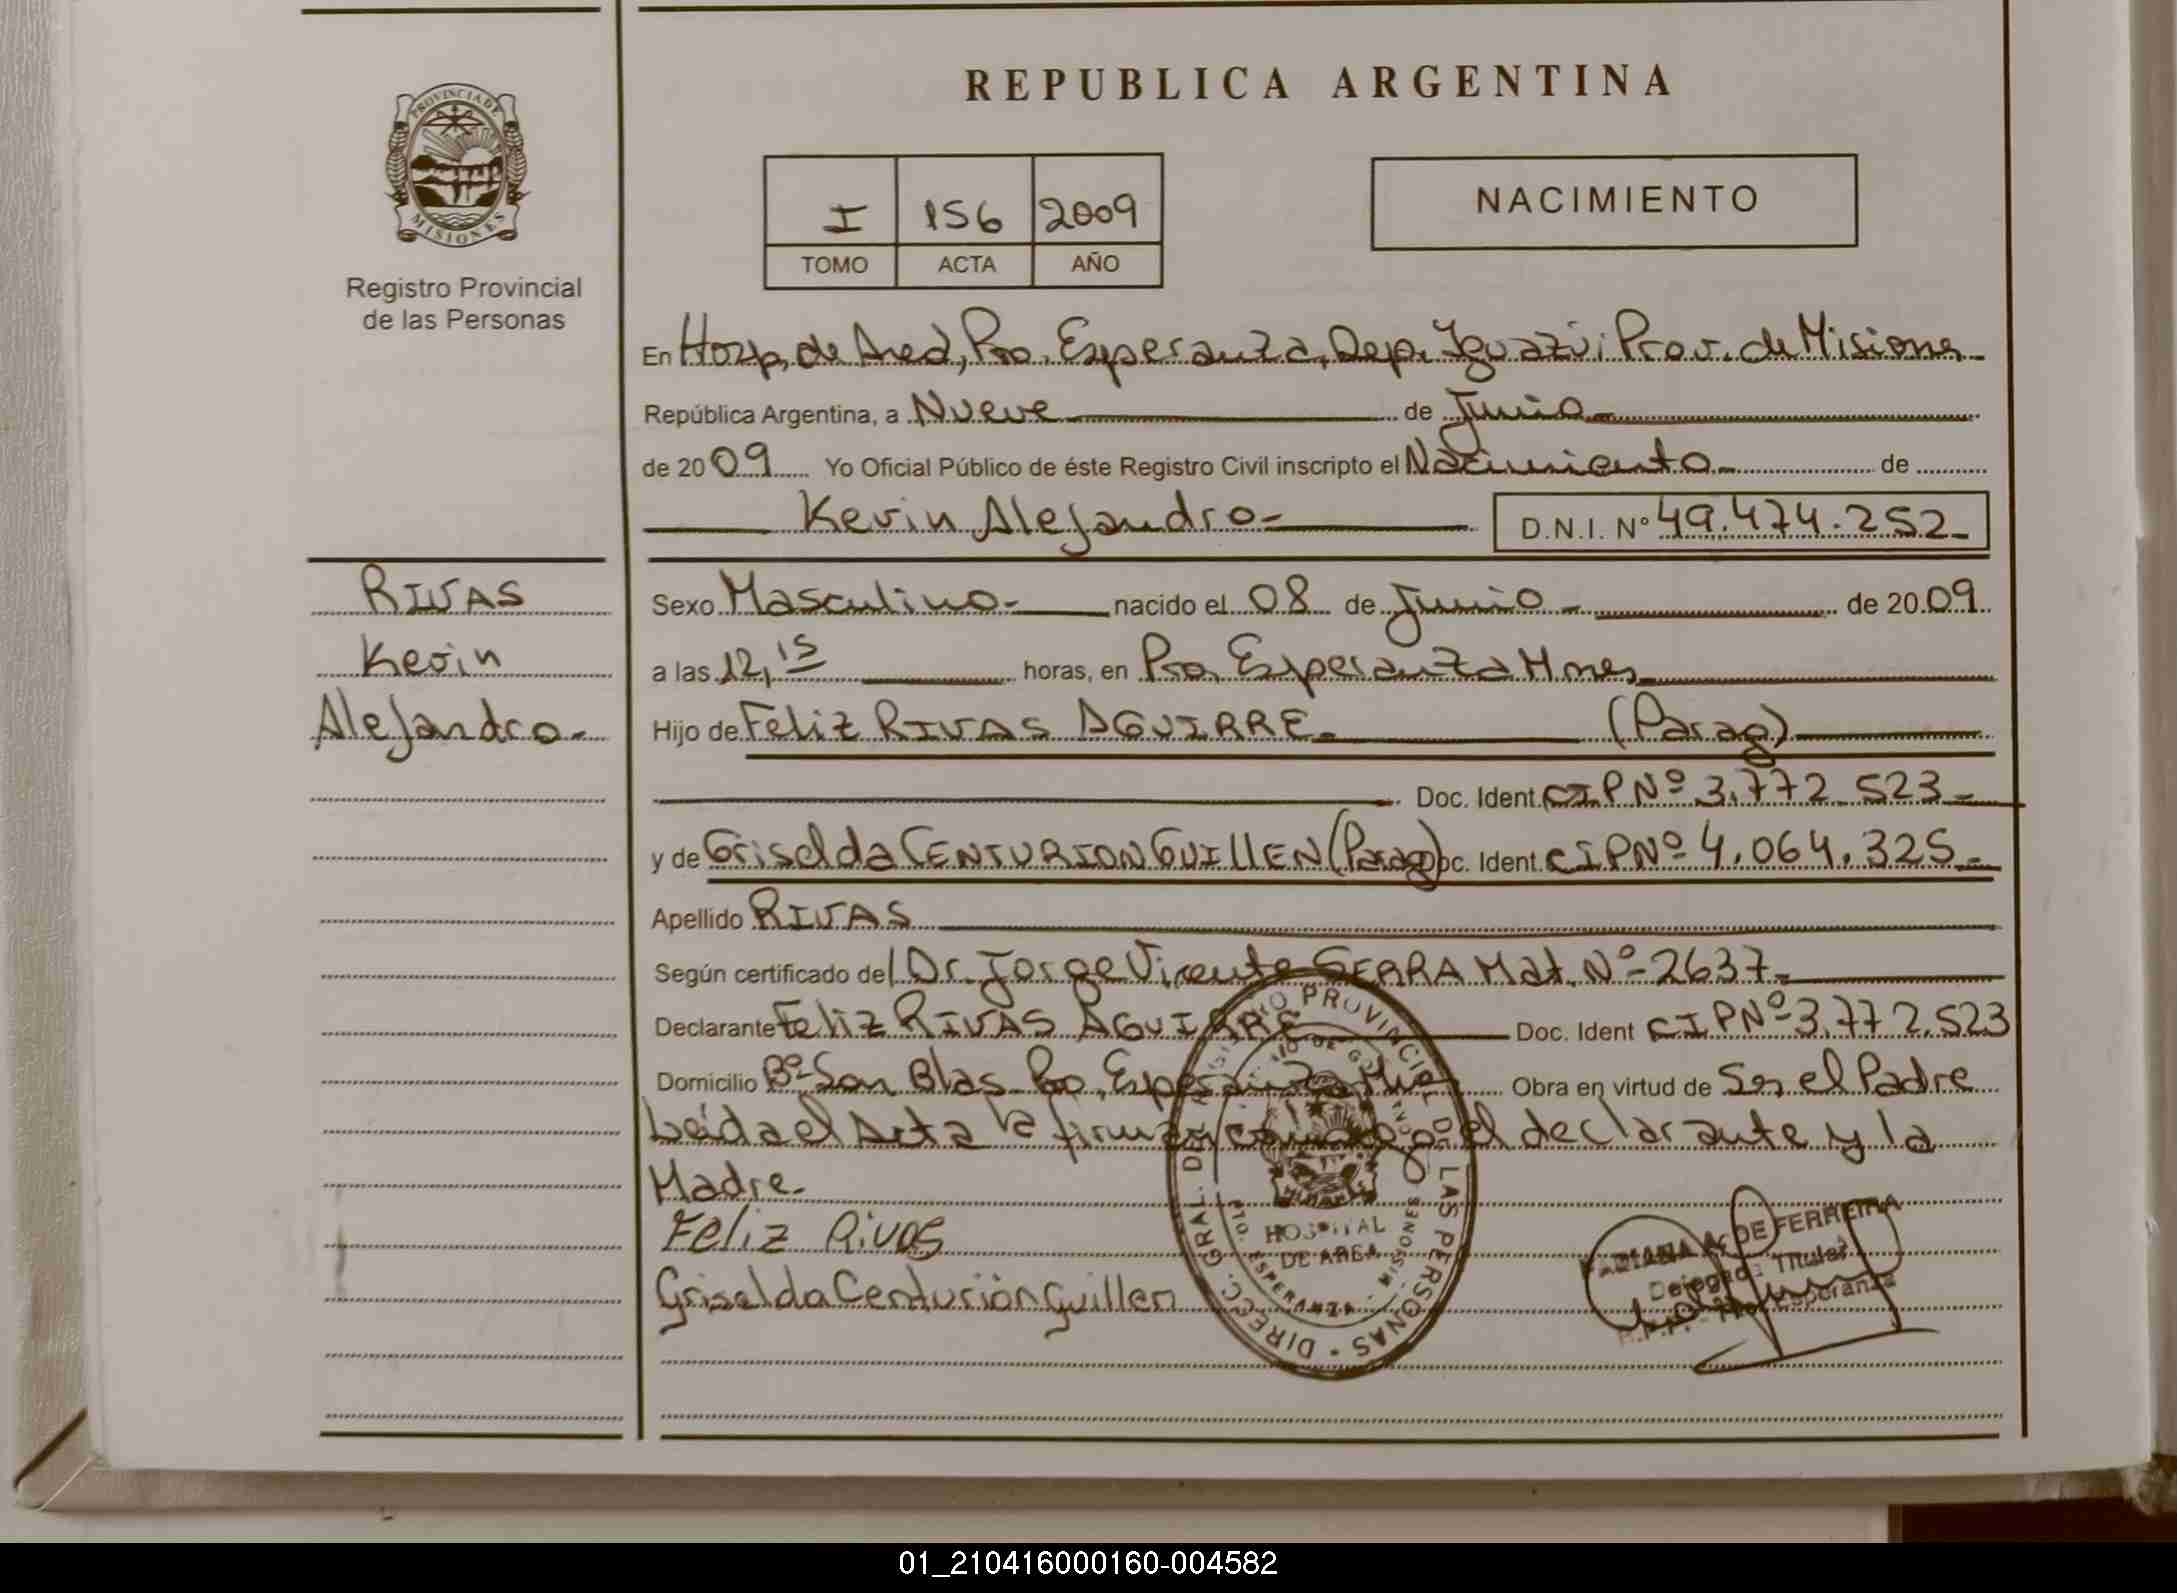 REPUBLICA ARGENTINA
PROVINCIA DE
MISIONES
Registro Provincial
de las Personas
I 156 2009
TOMO ACTA AÑO
NACIMIENTO
En Hosp, de Area, Pto. Esperanza, Dep. Iguazú; Prov. de Misiones
República Argentina, a Nueve de Junio
de 2009 Yo Oficial Público de éste Registro Civil inscripto el Nacimiento de
Kevin Alejandro D.N.I. Nº 49.474.252
RIVAS
Kevin
Alejandro
Sexo Masculino nacido el 08 de Junio de 2009
a las 12,15 horas, en Pto. Esperanza Mnes
Hijo de Feliz RIVAS AGUIRRE (Parag)
Doc. Ident. CIPNº 3.772.523
y de Griselda CENTURION GUILLEN (Parag) Doc. Ident. CIPNº 4.064.325
Apellido RIVAS
Según certificado del Dr. Jorge Vicente SERRA Mat. Nº 2637
Declarante Feliz RIVAS AGUIRRE Doc. Ident CIPNº 3.772.523
Domicilio Bº San Blas Pto, Esperanza Obra en virtud de Ser el Padre
Leída el Acta la firman conmigo el declarante y la
Madre.
Feliz Rivas
Griselda Centurión Guillen
DIRECC. GRAL. DEL REGISTRO PROVINCIAL DE LAS PERSONAS
HOSPITAL
DE AREA
PTO. ESPERANZA - MISIONES
A. DE FERREIRA
Delegada Titular
Esperanza
01_210416000160-004582